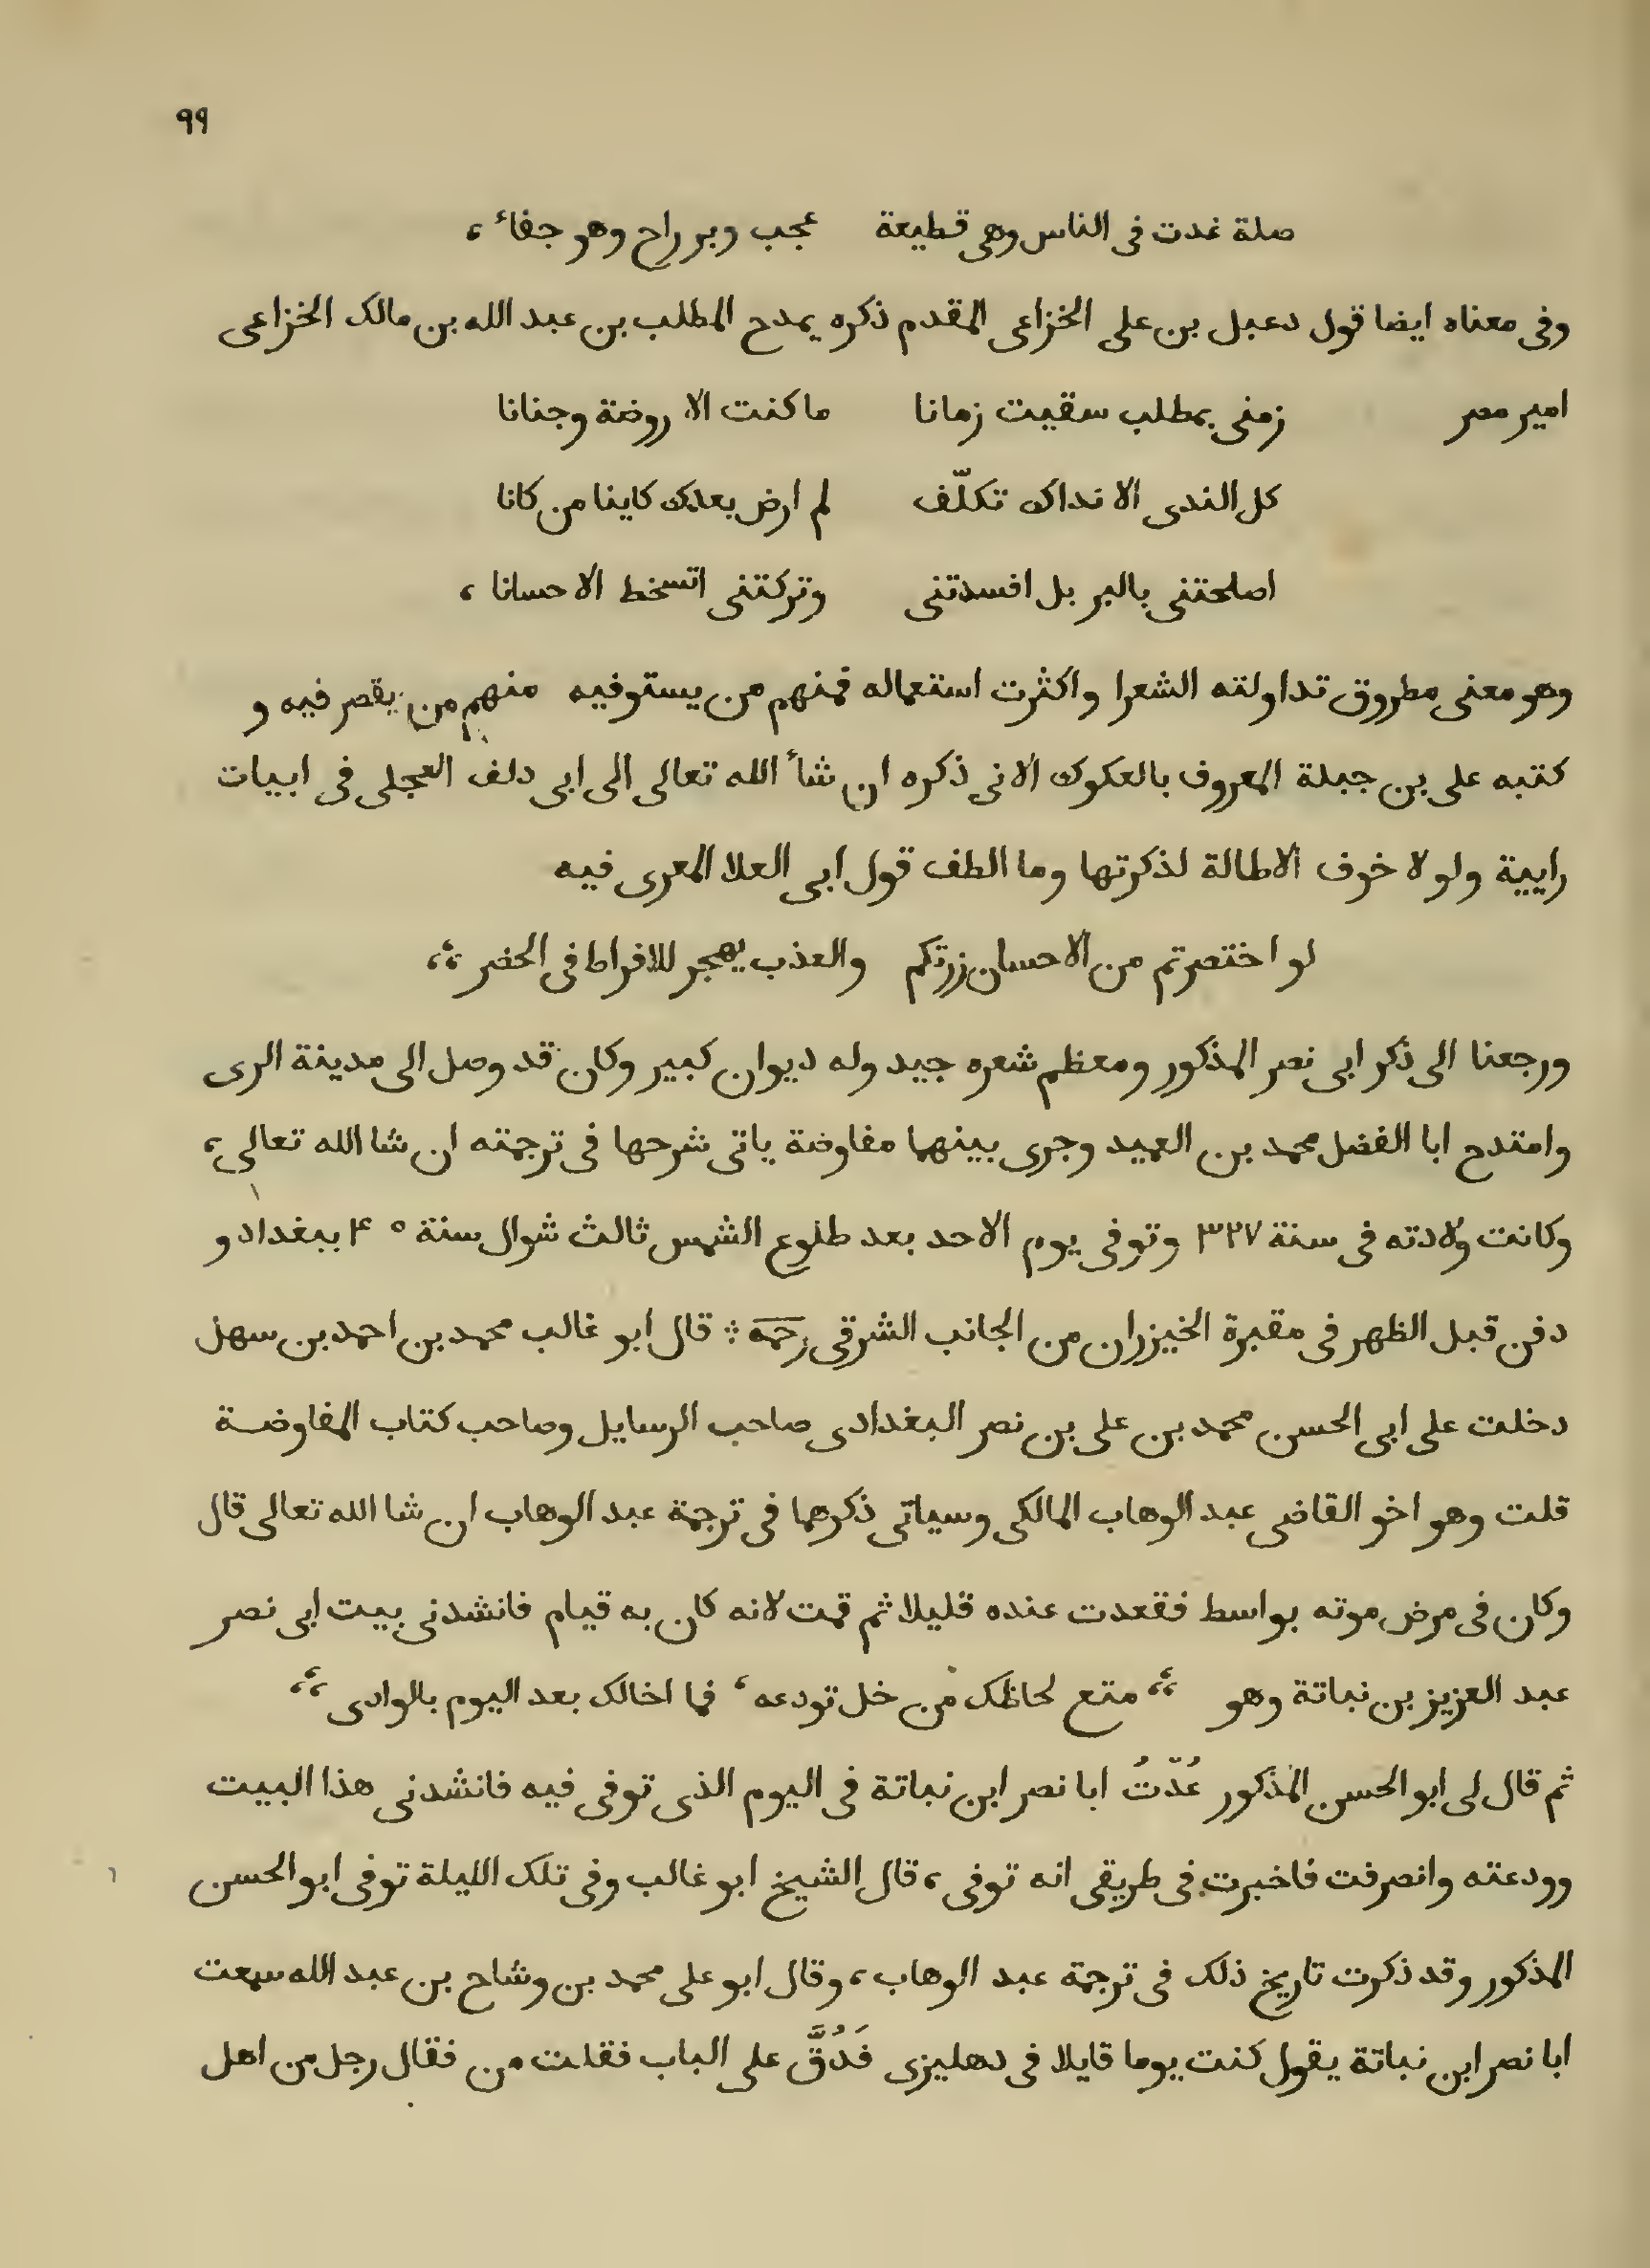 ٩٩
صلة غدت فى الناس وهى قطيعة عجب وبر راح وهو جفاء ،
وفى معناه ايضا قول دعبل بن على الخزاعى المقدم ذكره يمدح المطلب بن عبد الله بن مالك الخزاعى
امير مصر زمنى بمطلب سقيت زمانا ما كنت الا روضة وجنانا
كل الندى الا نداك تكلّف لم ارض بعدك كاينا من كانا
اصلحتنى بالبر بل افسدتنى وتركتنى اتسخط الاحسانا ،
وهو معنى مطروق تداولته الشعرا واكثرت استعماله فمنهم من يستوفيه منهم من يقصر فيه و
كتبه على بن جبلة المعروف بالعكوك الاتى ذكره ان شاء الله تعالى الى ابى دلف العجلى فى ابيات
راييية ولولا خوف الاطالة لذكرتها وما الطف قول ابى العلا المعرى فيه
لو اختصرتم من الاحسان زرتكم والعذب يهجر للافراط فى الخصر ؛،
ورجعنا الى ذكر ابى نصر المذكور ومعظم شعره جيد وله ديوان كبير وكان قد وصل الى مدينة الرى
وامتدح ابا الفضل محمد بن العميد وجرى بينهما مفاوضة ياتى شرحها فى ترجمته ان شا الله تعالى ،
وكانت ولادته فى سنة ٣٢٧ وتوفى يوم الاحد بعد طلوع الشمس ثالث شوال سنة ٤٠٥ ببغداد و
دفن قبل الظهر فى مقبرة الخيزران من الجانب الشرقى رحمه ؛ قال ابو غالب محمد بن احمد بن سهل
دخلت على ابى الحسن محمد بن على بن نصر البغدادى صاحب الرسايل وصاحب كتاب المفاوضة
قلت وهو اخو القاضى عبد الوهاب المالكى وسياتى ذكرهما فى ترجمة عبد الوهاب ان شا الله تعالى قال
وكان فى مرض موته بواسط فقعدت عنده قليلا ثم قمت لانه كان به قيام فانشدنى بيت ابى نصر
عبد العزيز بن نباتة وهو ؛، متع لحاظك من خل تودعه ، فما اخالك بعد اليوم بالوادى ؛،
ثم قال لى ابو الحسن المذكور عُدّتُ ابا نصر ابن نباتة فى اليوم الذى توفى فيه فانشدنى هذا البيت
وودعته وانصرفت فاخبرت فى طريقى انه توفى ، قال الشيخ ابو غالب وفى تلك الليلة توفى ابو الحسن
المذكور وقد ذكرت تاريخ ذلك فى ترجمة عبد الوهاب ، وقال ابو على محمد بن وشاح بن عبد الله سمعت
ابا نصر ابن نباتة يقول كنت يوما قايلا فى دهليزى فَدُقَّ على الباب فقلت من فقال رجل من اهل